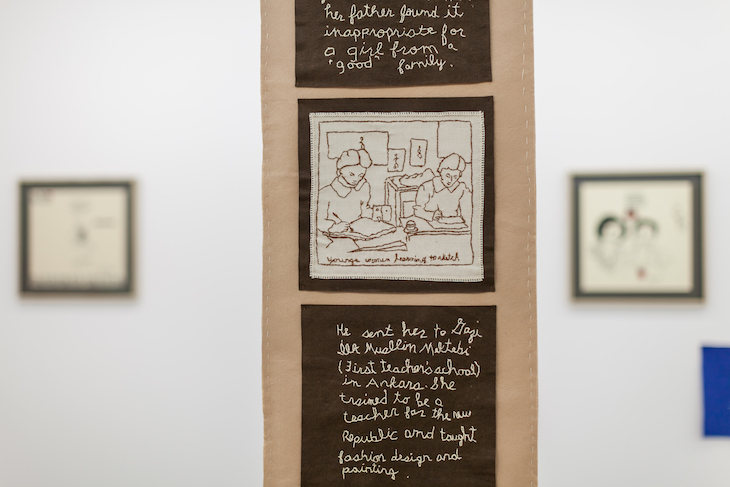 her father found it
inappropriate for
a girl from a
"good" family.
younge women learning to sketch
He sent her to Gazi
İlk Muallim Mektebi
(First teacher's school)
in Ankara. She
trained to be a
teacher for the new
Republic and taught
fashion design and
painting.